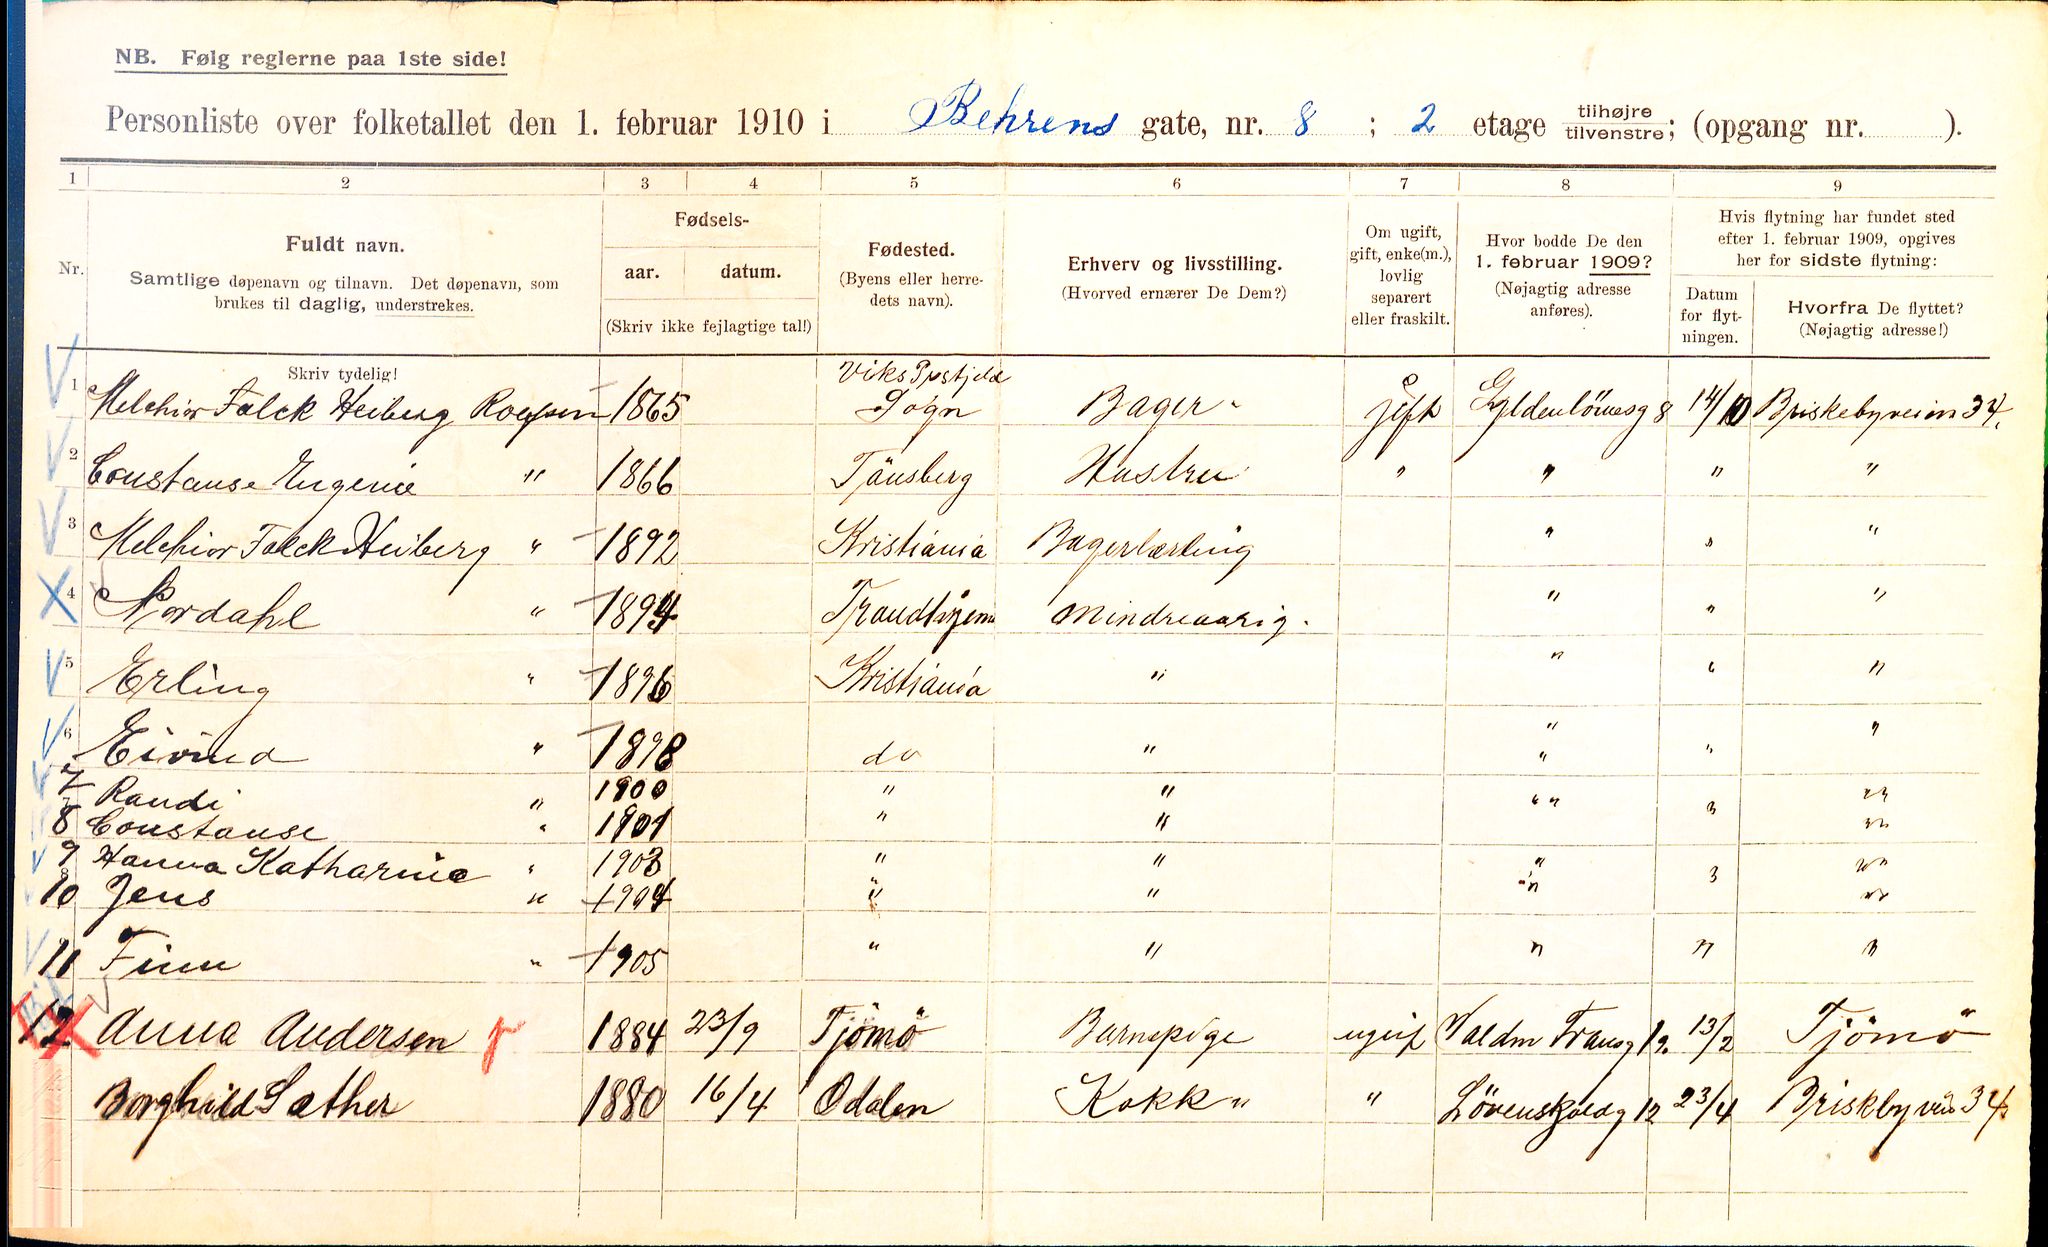 NB. Følg reglerne paa 1ste side!
Personliste over folketallet den 1. februar 1910 i Behrens gate, nr. 8 ; 2 etage tilhøjre tilvenstre; (opgang nr. ).
1 2 3 4 5 6 7 8 9
Nr.
Fuldt navn.
Samtlige døpenavn og tilnavn. Det døpenavn, som
brukes til daglig, understrekes.
Skriv tydelig!
Fødsels-
aar. datum.
(Skriv ikke fejlagtige tal!)
Fødested.
(Byens eller herre-
dets navn).
Erhverv og livsstilling.
(Hvorved ernærer De Dem?)
Om ugift,
gift, enke(m.),
lovlig
separert
eller fraskilt.
Hvor bodde De den
1. februar 1909?
(Nøjagtig adresse
anføres).
Hvis flytning har fundet sted
efter 1. februar 1909, opgives
her for sidste flytning:
Datum
for flyt-
ningen.
Hvorfra De flyttet?
(Nøjagtig adresse!)
1 Melchior Falck Heiberg 1865 Sogn Bager gift Gyldenlövesg 8 14/10 Briskebyveien 34.
2 Constanse Eugenie " 1866 Tönsberg Hustru " " " "
3 Melchior Falck Heiberg " 1892 Kristiania Bagerlærling " " "
4 Nordahl " 1894 Trondhjem Mindreaarig. " " "
5 Erling " 1896 Kristiania " " " "
6 Eivind " 1898 do " " " "
7 Randi " 1900 " " " " "
8 Constanse " 1901 " " " "
9 Hanna Katharine " 1903 " " " " "
10 Jens " 1904 " " " "
11 Finn " 1905 " " " " "
12. Anna Andersen 1884 23/9 Tjömö Barnepige ugift Valdm Transg 19. 13/2 Tjömö
Borghild Sæther 1880 16/4 Odalen Kokk " " Lövenskoldg 12 23/4 Briskbyvei 34